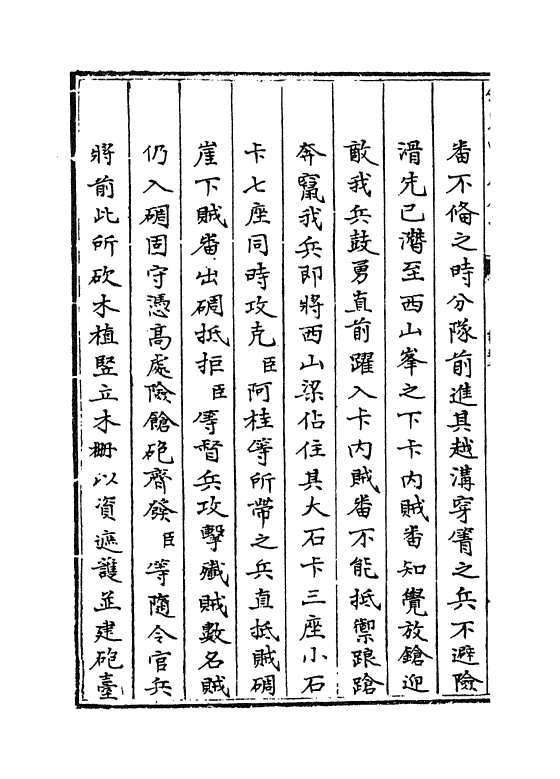 番不備之時分隊前進其越溝穿箐之兵不避險
滑先已潛至西山峯之下卡内賊番知覺放鎗迎
敵我兵鼓勇直前躍入卡内賊番不能抵禦踉蹌
奔竄我兵即將西山梁佔住其大石卡三座小石
卡七座同時攻克臣阿桂等所帶之兵直抵賊碉
崖下賊番出碉抵拒臣等督兵攻擊殱賊數名賊
仍入碉固守憑高處險鎗砲齊發臣等隨令官兵
將前此所砍木植竪立木柵以資遮護並建砲臺